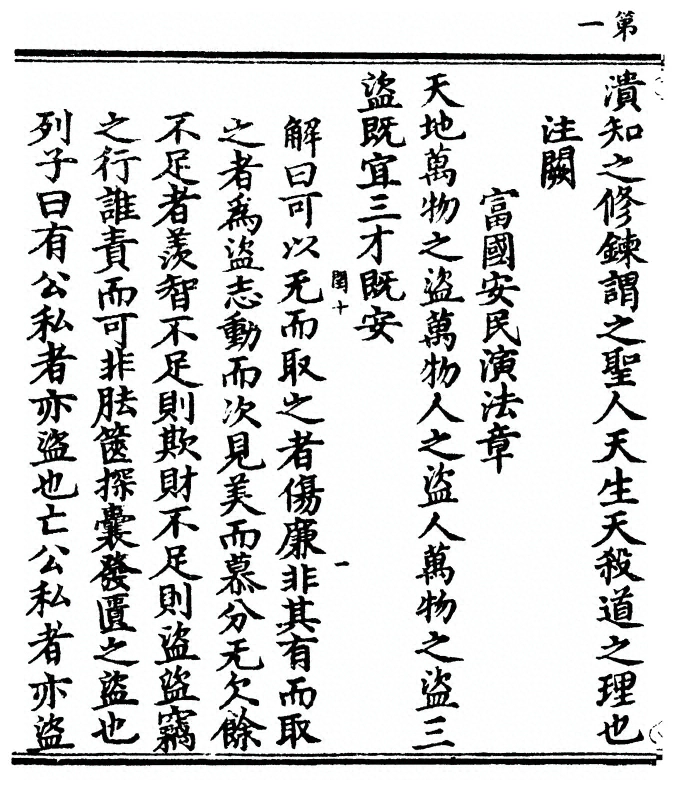 第一
潰知之修鍊謂之聖人天生天殺道之理也
注闕
富國安民演法章
天地萬物之盜萬物人之盜人萬物之盜三
盜既宜三才既安
解曰可以无而取之者傷廉非其有而取
閏十
一
之者爲盜志動而次見美而慕分无欠餘
不足者羨智不足則欺財不足則盜盜竊
之行誰責而可非胠篋探囊發匱之盜也
列子曰有公私者亦盜也亡公私者亦盜